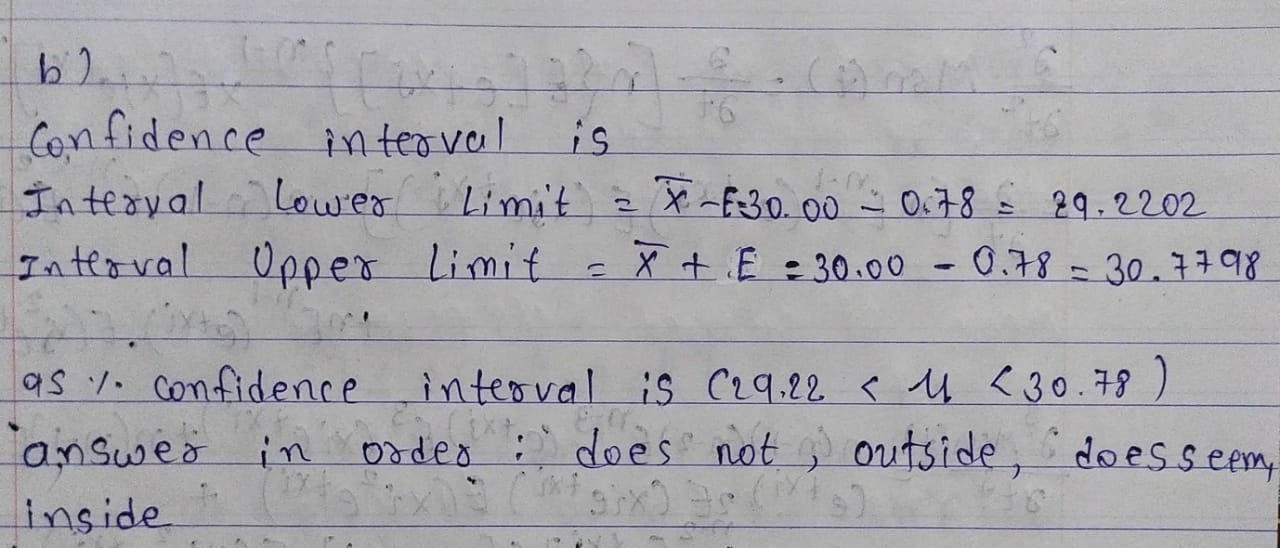 b)
Confidence interval is
Interval Lower Limit = x̄ -E=30.00 - 0.78 = 29.2202
Interval Upper Limit = x̄ + E = 30.00 - 0.78 = 30.7798
95 % confidence interval is (29.22 < μ < 30.78)
answer in order : does not, outside, does seem,
inside